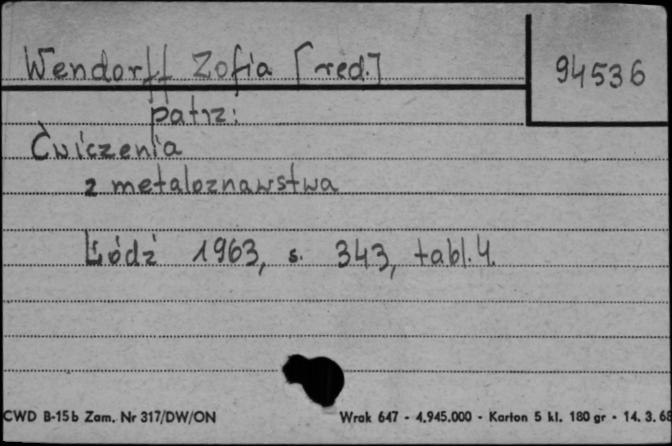 Wendorff Zofia [red.]
94536
patrz:
Ćwiczenia
z metaloznawstwa
Łódź 1963, s. 343, tabl. 4.
CWD B-15b Zam. Nr 317/DW/ON
Wrak 647 - 4.945.000 - Karton 5 kl. 180 gr - 14. 3. 68